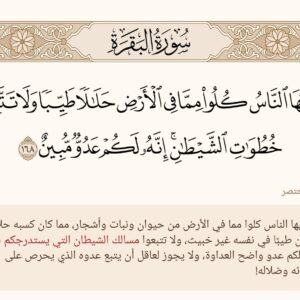 سُورَةُ البَقَرَةِ
هَا النَّاسُ كُلُوا۟ مِمَّا فِي الْأَرْضِ حَلَالًا طَيِّبًا وَلَا تَتَّ
خُطُوَاتِ الشَّيْطَانِ ۚ إِنَّهُ لَكُمْ عَدُوٌّ مُّبِينٌ ١٦٨
ختصر
يها الناس كلوا مما في الأرض من حيوان ونبات وأشجار، مما كان كسبه حلا
طيبًا في نفسه غير خبيث، ولا تتبعوا مسالك الشيطان التي يستدرجكم
لكم عدو واضح العداوة، ولا يجوز لعاقل أن يتبع عدوه الذي يحرص على
ئه وضلاله!